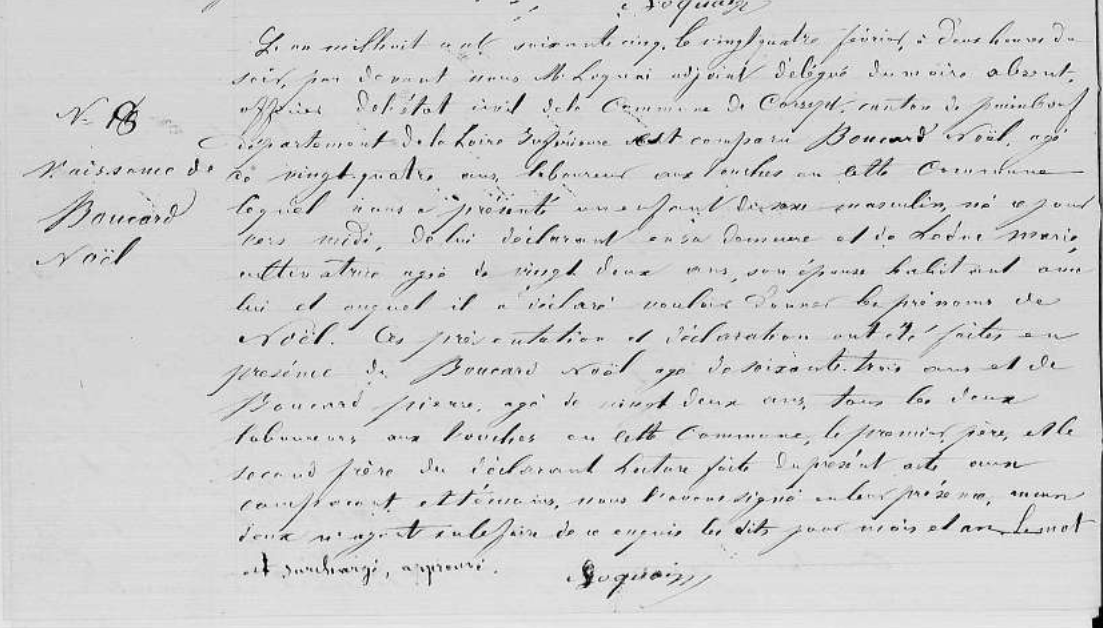 L'an mil huit cent soixante cinq, le vingt quatre février, à deux heures du
soir, par devant nous M. Loquai adjoint délégué du maire absent,
officier de l'état civil de la Commune de Corsept, canton de paimboeuf
département de la Loire Inférieure est comparu Boucard Noël, agé
N° 18
Naissance de
Boucard
Noël
de vingt quatre ans, laboureur aux touches en cette Commune
lequel nous a présenté un enfant du sexe masculin, né ce jour
vers midi, de lui déclarant en sa demeure et de Marie,
cultivatrice agée de vingt deux ans, son épouse habitant avec
lui et auquel il a déclaré vouloir donner les prénoms de
Noël. Ces présentation et déclaration ont été faites en
présence de Boucard Noël agé de soixante-trois ans et de
Boucard pierre, agé de vingt deux ans, tous les deux
laboureurs aux touches en cette Commune, le premier père, et le
second frère du déclarant Lecture faite du présent acte aux
comparant et témoins, nous l'avons signé en leur présence, aucun
d'eux n'ayant su le faire de ce enquis les dits jour mois et an. Le mot
est surchargé, approuvé.